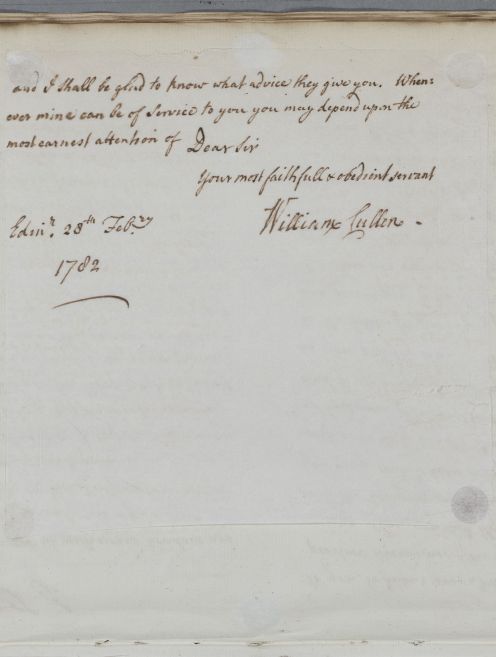 and I shall be glad to know what advice they give you. When=
ever mine can be of Service to you you may depend upon the
most earnest attention of Dear Sir
Your most faithfull & obedient servant
William Cullen.
Edinr. 28th Febry
1782